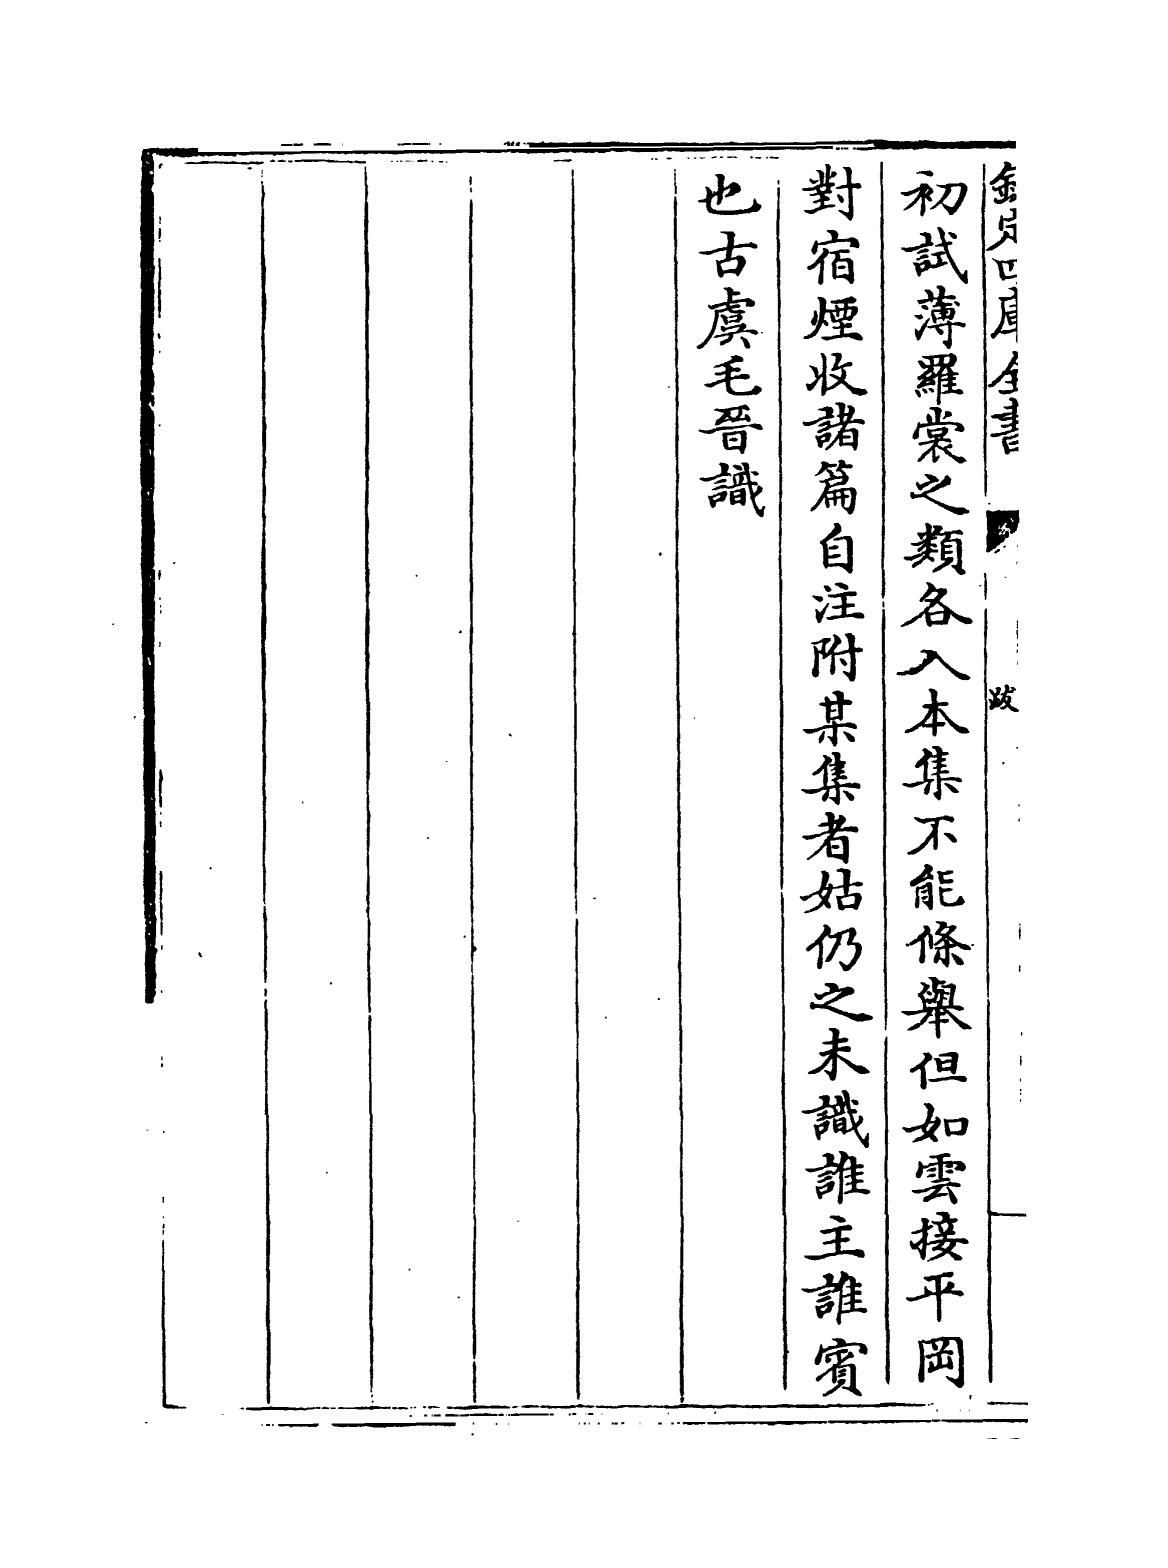 欽定四庫全書
跋
初試薄羅裳之類各入本集不能條舉但如雲接平岡
對宿煙收諸篇自注附某集者姑仍之未識誰主誰賓
也古虞毛晉識